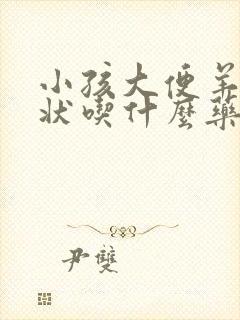 小孩大便羊
状喫什麼藥
尹雙